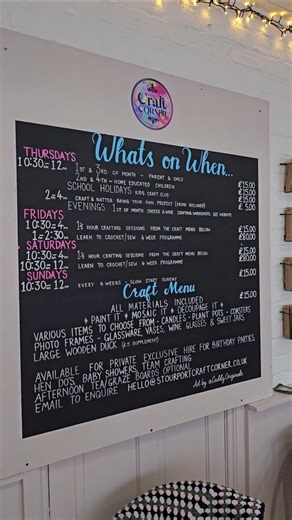 Craft
CORNER
Whats on When...
THURSDAYS
10:30=12= 1st & 3RD OF MONTH - PARENT & CHILD
2ND & 4TH - HOME EDUCATED CHILDREN £15.00
SCHOOL HOLIDAYS KIDS CRAFT CLUB £15.00
2=4= CRAFT & NATTER BRING YOUR OWN PROJECT (MENU INCLUDED) £15.00
EVENINGS 1ST OF MONTH CHEESE & WINE CRAFTING WORKSHOPS SEE WEBSITE £ 5.00
FRIDAYS
10:30=4= 1½ HOUR CRAFTING SESSIONS FROM THE CRAFT MENU BELOW £15.00
1=2:30= LEARN TO CROCHET/SEW 4 WEEK PROGRAMME £80.00
SATURDAYS
10:30=4= 1½ HOUR CRAFTING SESSIONS FROM THE CRAFT MENU BELOW £15.00
10:30=12= LEARN TO CROCHET/SEW 4 WEEK PROGRAMME £80.00
SUNDAYS
10:30=12= EVERY 4 WEEKS - SLOW START SUNDAY £15.00
Craft Menu
ALL MATERIALS INCLUDED £15.00
+ PAINT IT + MOSAIC IT + DECOUPAGE IT +
VARIOUS ITEMS TO CHOOSE FROM - CANDLES - PLANT POTS - COASTERS
PHOTO FRAMES - GLASSWARE VASES, WINE GLASSES & SWEET JARS
LARGE WOODEN DUCK (£5 SUPPLEMENT)
AVAILABLE FOR PRIVATE EXCLUSIVE HIRE FOR BIRTHDAY PARTIES,
HEN DO'S, BABY SHOWERS, TEAM CRAFTING
AFTERNOON TEA/GRAZE BOARDS OPTIONAL
EMAIL TO ENQUIRE HELLO@STOURPORTCRAFTCORNER.CO.UK
Art by